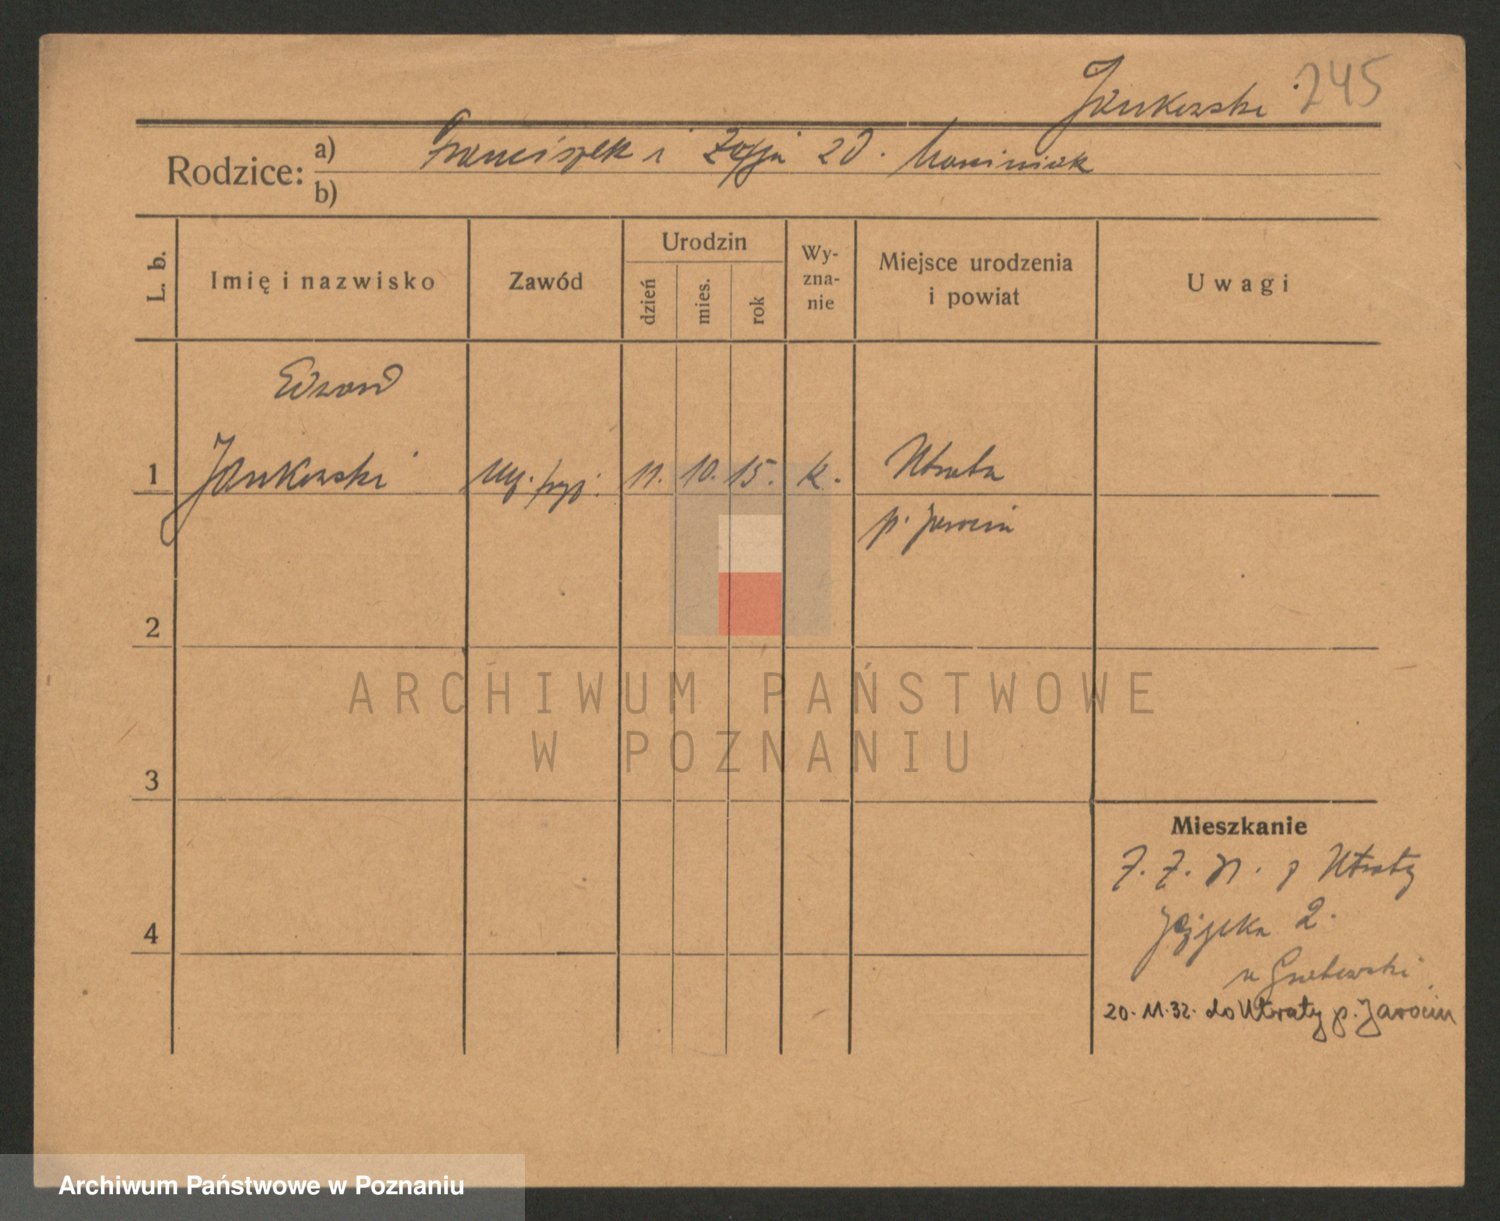 Jankowski 245
Rodzice: a) Franciszek i Zofja zd. Marciniak
b)
L. b.
Imię i nazwisko
Zawód
Urodzin
dzień
mies.
rok
Wy-
zna-
nie
Miejsce urodzenia
i powiat
Uwagi
Edward
1 Jankowski 11. 10. 15. k. Utrata
p. Jarocin
2
3
4
Mieszkanie
Utraty
2.
u
20. 11. 32. do Utraty p. Jarocin
ARCHIWUM PAŃSTWOWE
W POZNANIU
Archiwum Państwowe w Poznaniu